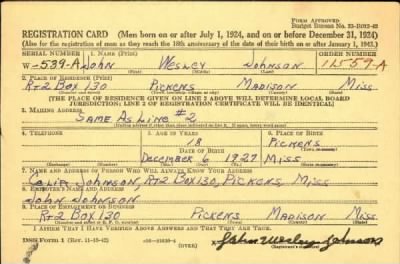 FORM APPROVED
Budget Bureau No. 33-R012-42
REGISTRATION CARD (Men born on or after July 1, 1924, and on or before December 31, 1924)
(Also for the registration of men as they reach the 18th anniversary of the date of their birth on or after January 1, 1943.)
SERIAL NUMBER 1. NAME (Print) ORDER NUMBER
W-539-A John Wesley Johnson 11559-A
(First) (Middle) (Last)
2. PLACE OF RESIDENCE (Print)
Rt 2 Box 130 Pickens Madison Miss
[THE PLACE OF RESIDENCE GIVEN ON LINE 2 ABOVE WILL DETERMINE LOCAL BOARD
JURISDICTION; LINE 2 OF REGISTRATION CERTIFICATE WILL BE IDENTICAL]
3. MAILING ADDRESS
Same As Line #2
4. TELEPHONE 5. AGE IN YEARS 6. PLACE OF BIRTH
18 Pickens
DATE OF BIRTH
December 6 1927 Miss
(Exchange) (Number) (Mo.) (Day) (Yr.)
7. NAME AND ADDRESS OF PERSON WHO WILL ALWAYS KNOW YOUR ADDRESS
Johnson, Rt 2 Box 130, Pickens, Miss
8. EMPLOYER'S NAME AND ADDRESS
John Johnson
9. PLACE OF EMPLOYMENT OR BUSINESS
Rt 2 Box 130 Pickens Madison Miss.
I AFFIRM THAT I HAVE VERIFIED ABOVE ANSWERS AND THAT THEY ARE TRUE.
DSS Form 1 (Rev. 11-16-42) John Wesley Johnson